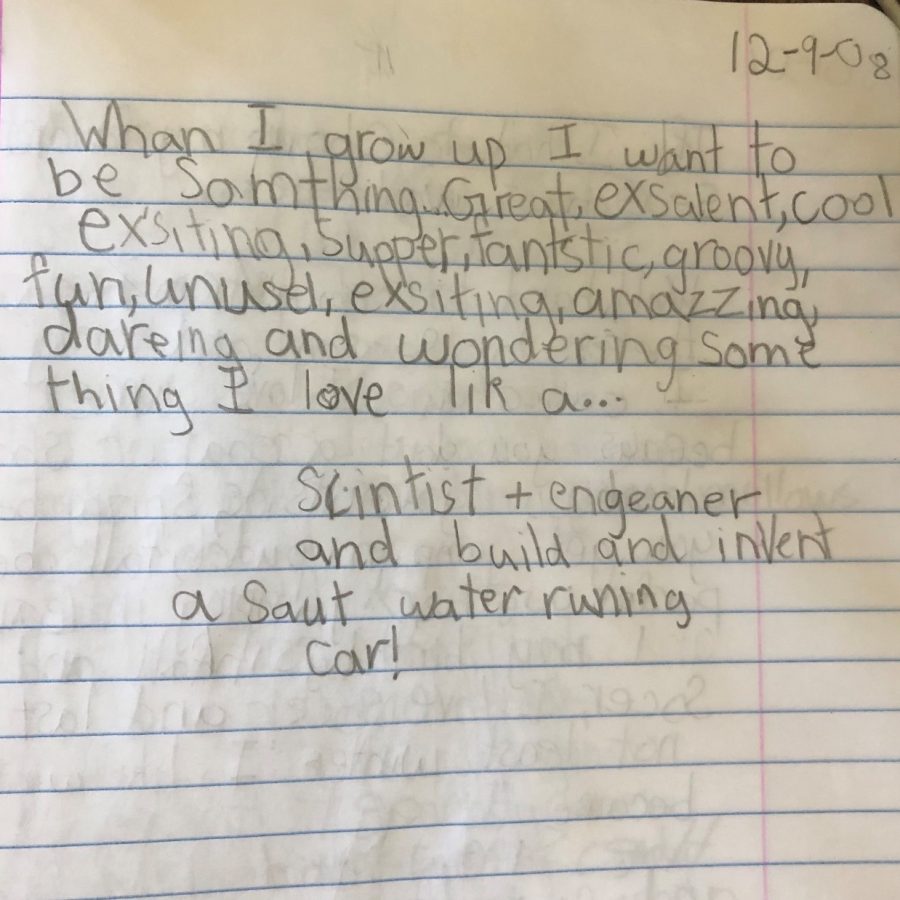 12-9-08
Whan I grow up I want to
be Somthing...Great, exsalent, cool
exsiting, Supper, fantstic, groovy,
fun, unusel, exsiting, amazzing,
dareing and wondering some
thing I love lik a...
Scintist + engeaner
and build and invent
a Saut water runing
car!